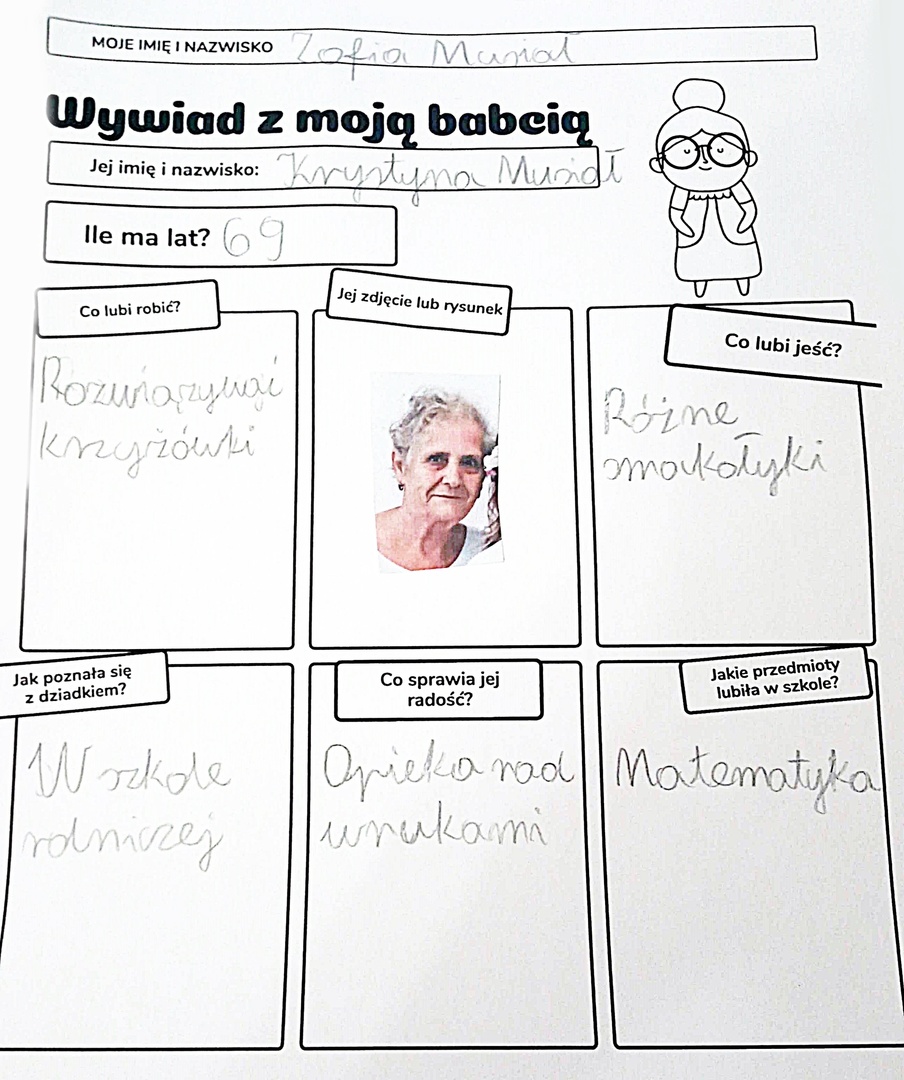 MOJE IMIĘ I NAZWISKO Zofia Musiał
Wywiad z moją babcią
Jej imię i nazwisko: Krystyna Musiał
Ile ma lat? 69
Co lubi robić?
Rozwiązywać
krzyżówki
Jej zdjęcie lub rysunek
Co lubi jeść?
Różne
smakołyki
Jak poznała się
z dziadkiem?
W szkole
rolniczej
Co sprawia jej
radość?
Opieka nad
wnukami
Jakie przedmioty
lubiła w szkole?
Matematyka